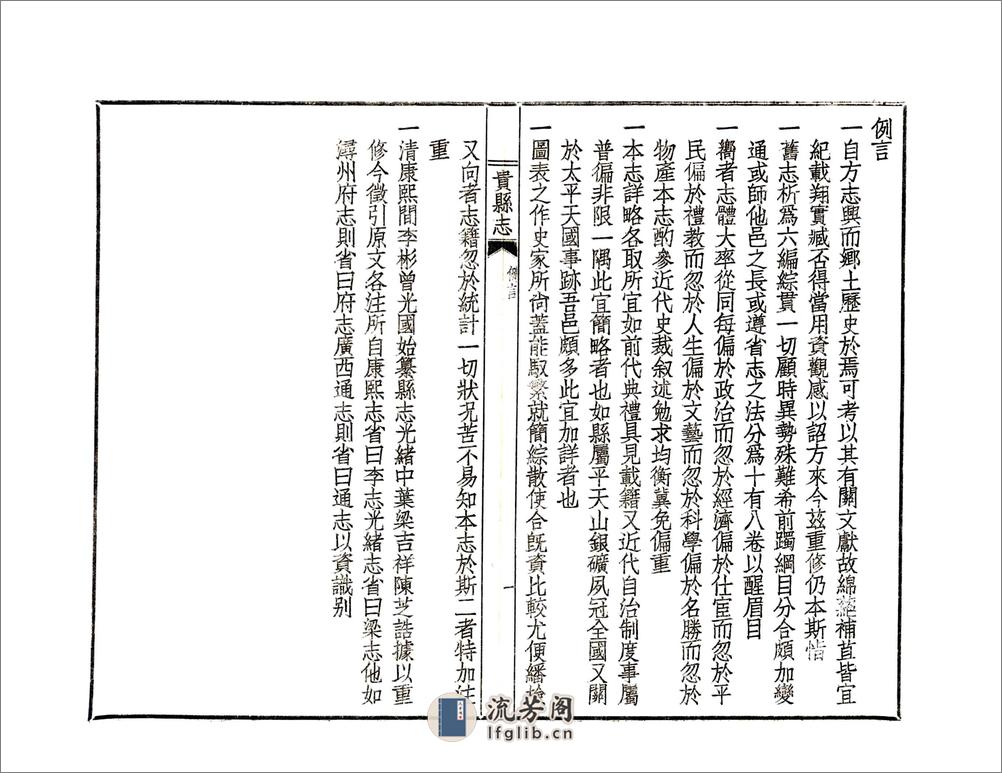 例言
一自方志興而鄉土歷史於焉可考以其有關文獻故綿蕝補苴皆宜
紀載翔實臧否得當用資觀感以詔方來今茲重修仍本斯恉
一舊志析爲六編綜貫一切顧時異勢殊難希前躅綱目分合頗加變
通或師他邑之長或遵省志之法分爲十有八卷以醒眉目
一嚮者志體大率從同每偏於政治而忽於經濟偏於仕宦而忽於平
民偏於禮教而忽於人生偏於文藝而忽於科學偏於名勝而忽於
物產本志酌參近代史裁叙述勉求均衡冀免偏重
一本志詳略各取所宜如前代典禮具見載籍又近代自治制度事屬
普徧非限一隅此宜簡略者也如縣屬平天山銀礦夙冠全國又關
於太平天國事跡吾邑頗多此宜加詳者也
一圖表之作史家所尙蓋能馭繁就簡綜散使合旣資比較尤便繙檢
貴縣志
例言
一
又向者志籍忽於統計一切狀況苦不易知本志於斯二者特加注
重
一清康熙間李彬曾光國始纂縣志光緒中葉梁吉祥陳芝誥據以重
修今徵引原文各注所自康熙志省曰李志光緒志省曰梁志他如
潯州府志則省曰府志廣西通志則省曰通志以資識别
流芳阁
lfglib.cn